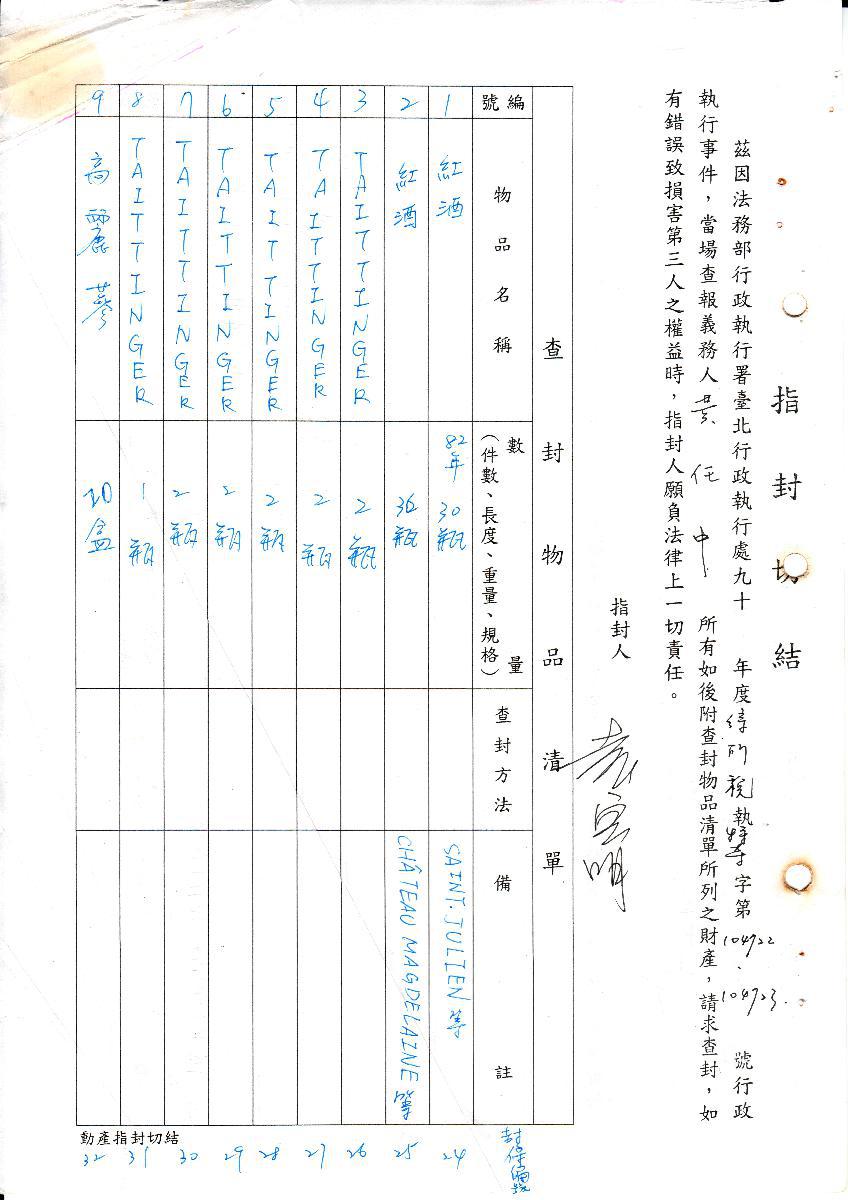 指封切結
茲因法務部行政執行署臺北行政執行處九十　年度綜所稅執特專字第104922、104923.號行政
執行事件，當場查報義務人黃任中　所有如後附查封物品清單所列之財產，請求查封，如
有錯誤致損害第三人之權益時，指封人願負法律上一切責任。
指封人
查封物品清單
編號　物品名稱　數量（件數、長度、重量、規格）　查封方法　備註　封條編號
1　紅酒　82年 30瓶　SAINT-JULIEN等　24
2　紅酒　36瓶　CHÂTEAU MAGDELAINE等　25
3　TAITTINGER　2瓶　26
4　TAITTINGER　2瓶　27
5　TAITTINGER　2瓶　28
6　TAITTINGER　2瓶　29
7　TAITTINGER　2瓶　30
8　TAITTINGER　1瓶　31
9　高麗蔘　20盒　32
動產指封切結